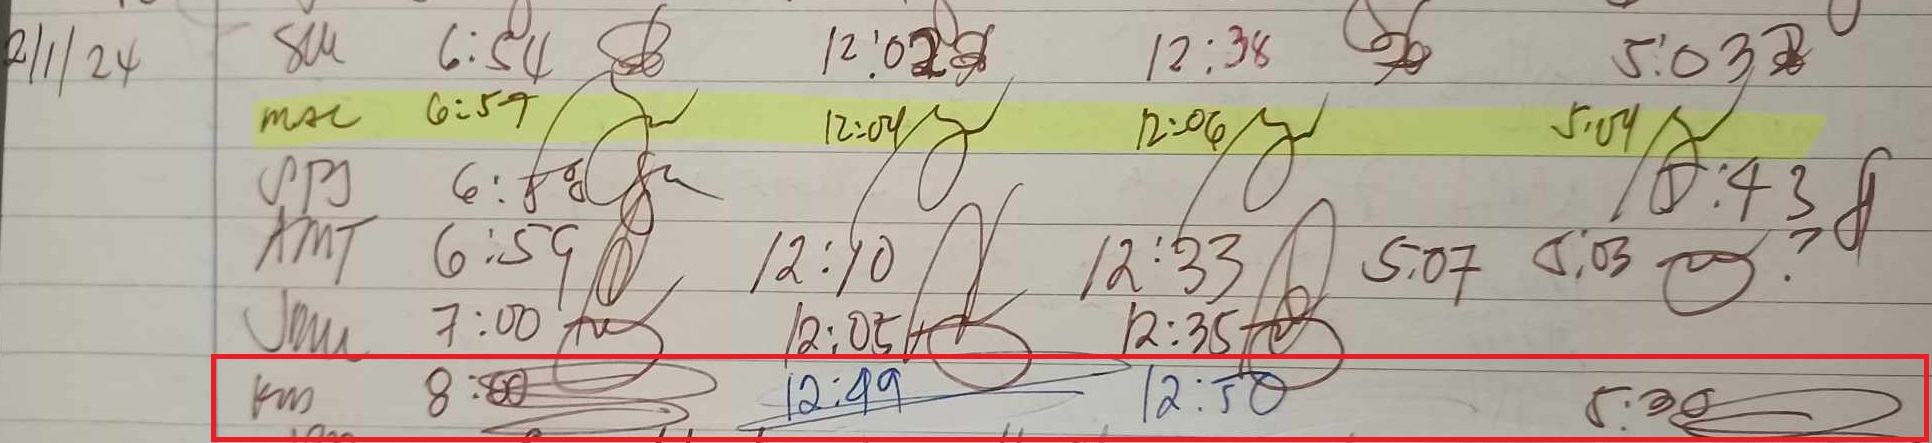 2/1/24 SM 6:54 12:02 12:38 5:03
msc 6:59 12:04 12:06 5:04
SPJ 6:58 5:43
AMT 6:59 12:10 12:33 5:07 5:03 ?
7:00 12:05 12:35
km 8: 12:49 12:50 5:30